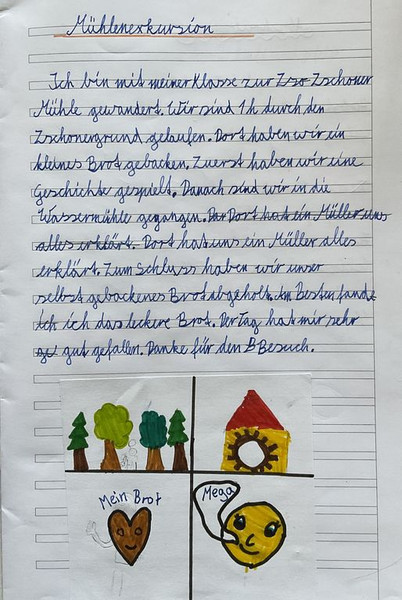 Mühlenexkursion
Ich bin mit meiner Klasse zur Zso Zschoner
Mühle gewandert. Wir sind 1h durch den
Zschonergrund gelaufen. Dort haben wir ein
kleines Brot gebacken. Zuerst haben wir eine
Geschichte gespielt. Danach sind wir in die
Wassermühle gegangen. Dar Dort hat ein Müller uns
alles erklärt. Dort hat uns ein Müller alles
erklärt. Zum Schluss haben wir unser
selbst gebackenes Brot abgeholt. Am Besten fand
ich ich das leckere Brot. Der Tag hat mir sehr
ge gut gefallen. Danke für den B Besuch.
Mein Brot
Mega